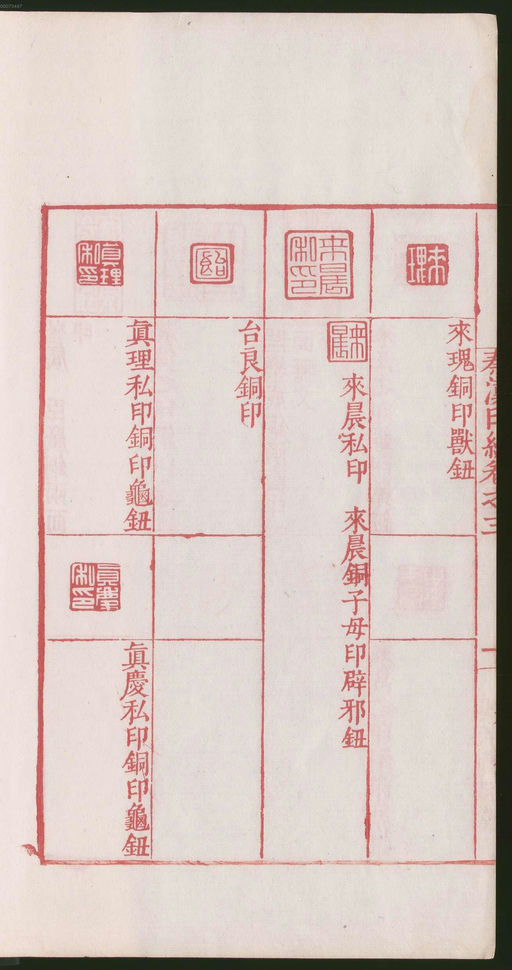 秦漢印統卷之三
來瑰銅印獸鈕
來晨私印 來晨銅子母印辟邪鈕
台良銅印
眞理私印銅印龜鈕
眞慶私印銅印龜鈕